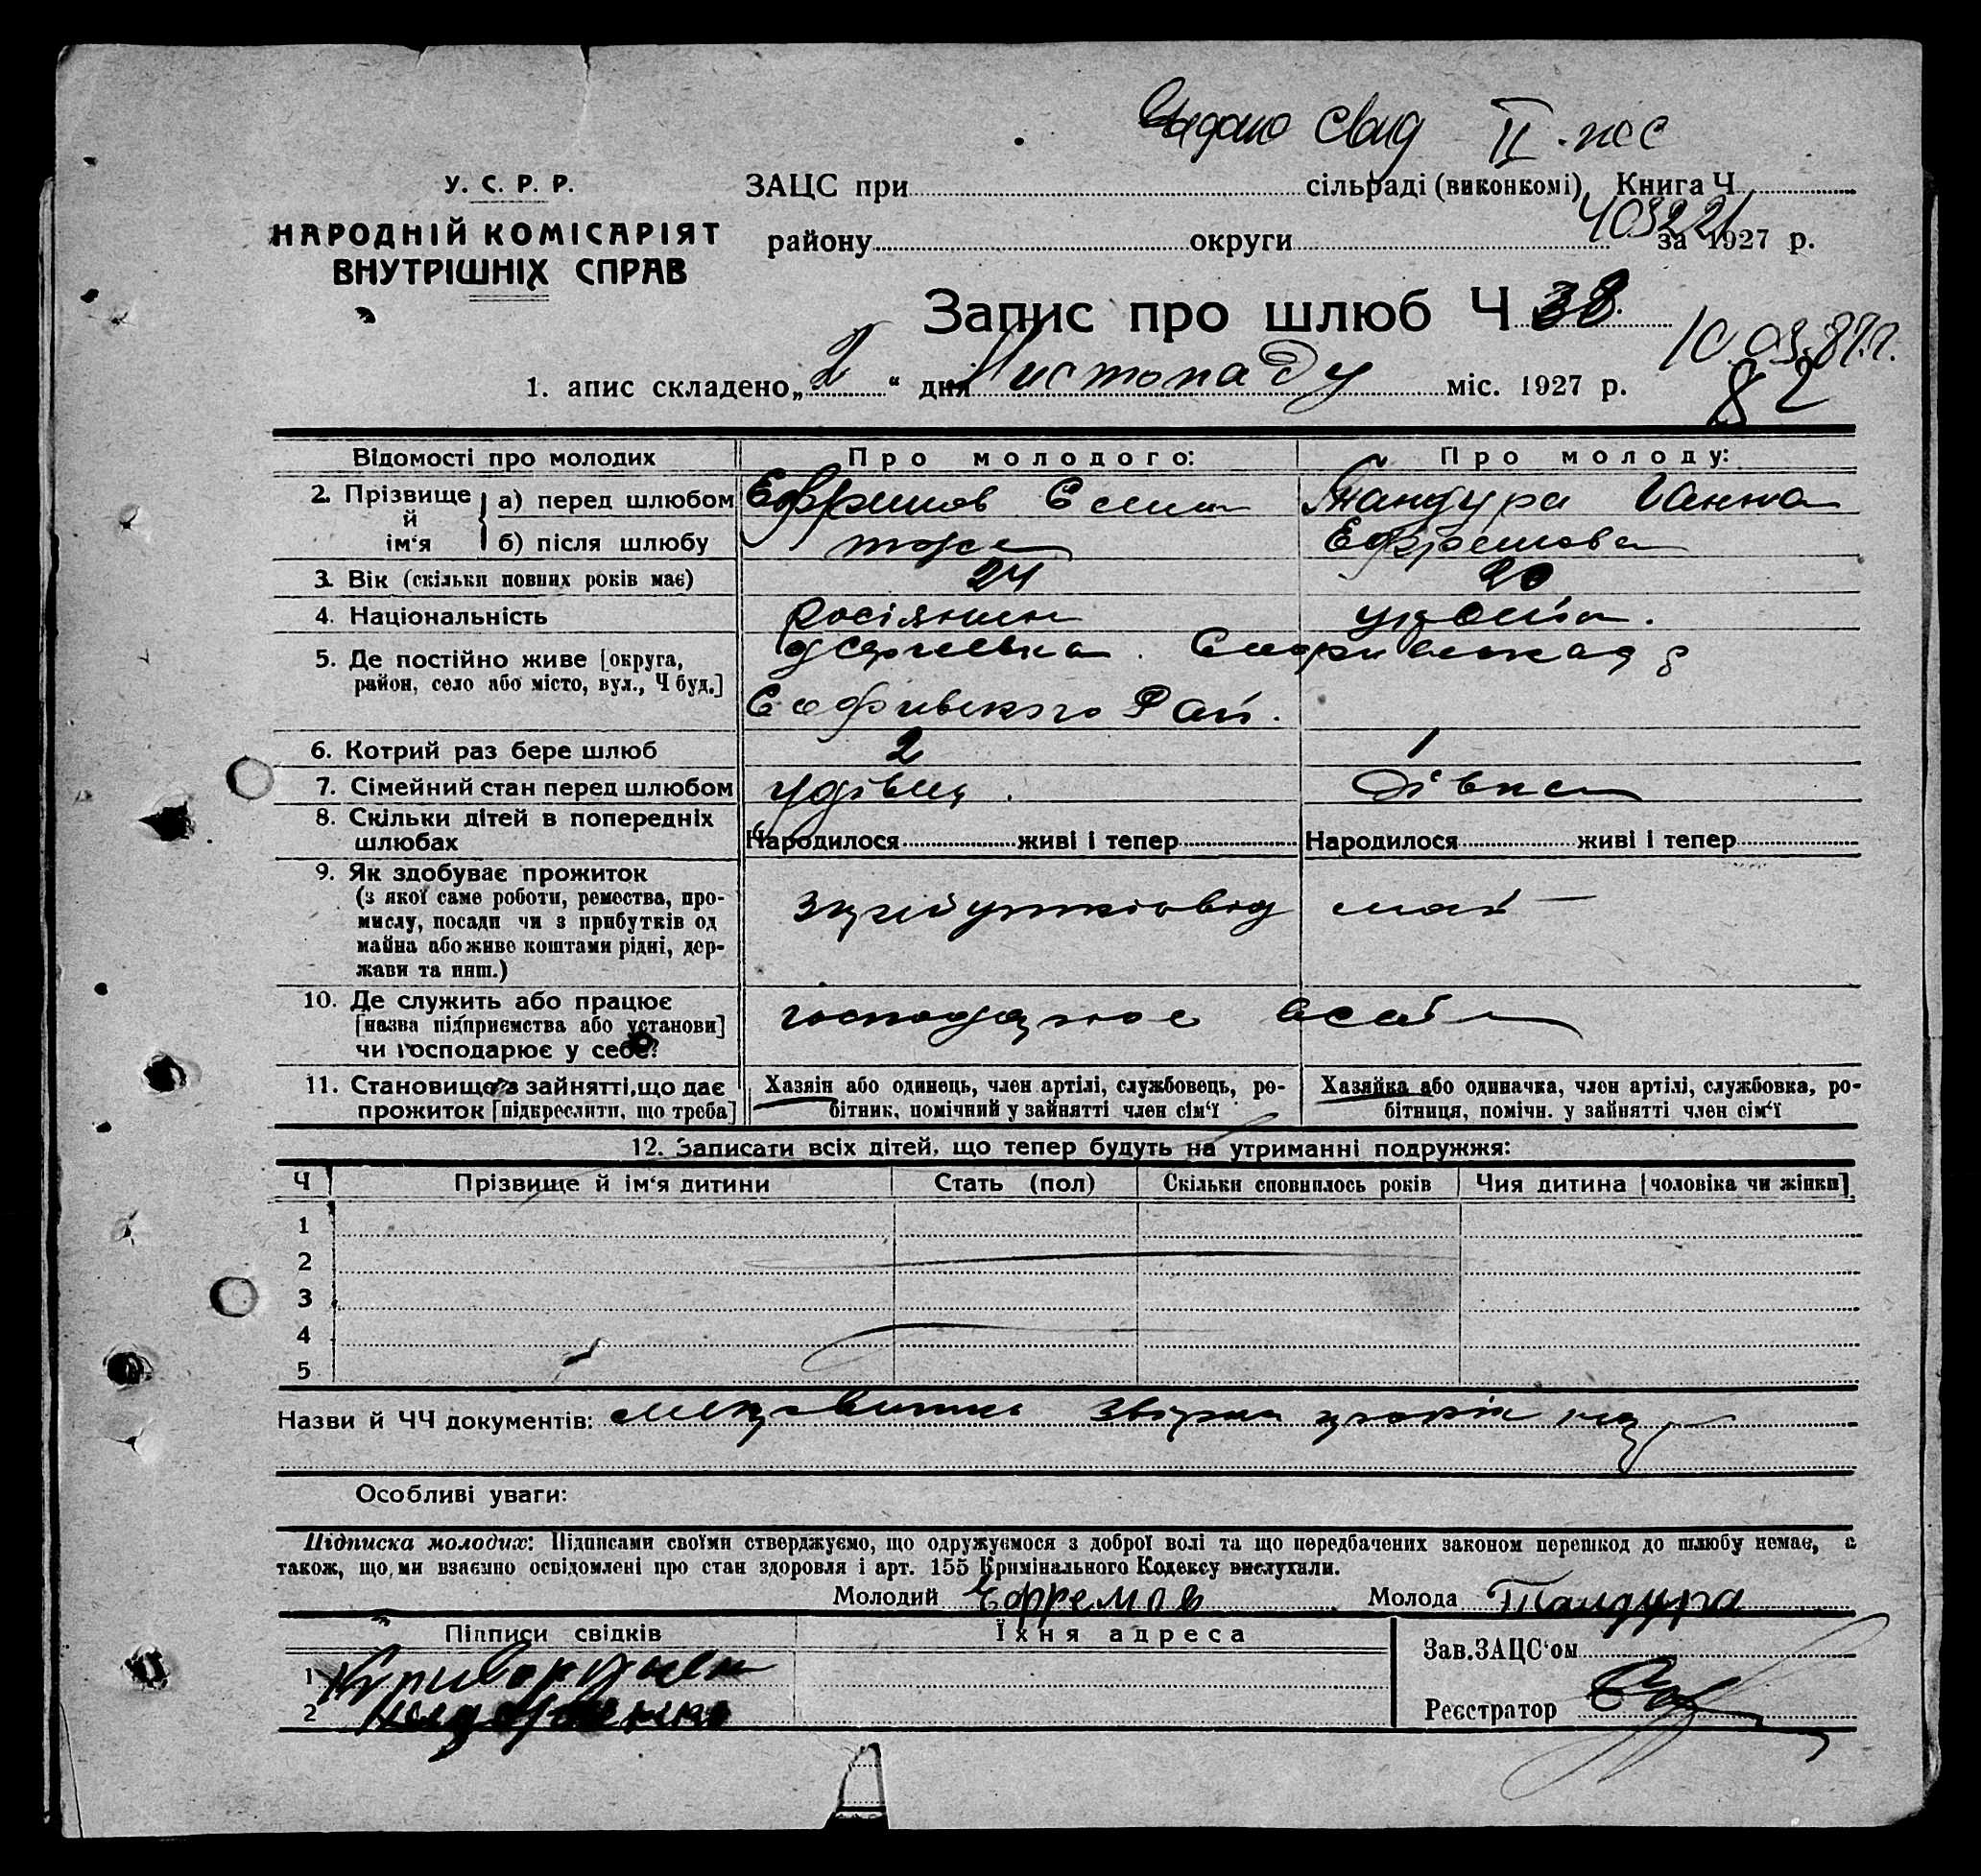 Видано свид II-нес
У. С. Р. Р.
НАРОДНІЙ КОМІСАРІЯТ
ВНУТРІШНІХ СПРАВ
ЗАЦС при сільраді (виконкомі), Книга Ч
району округи за 1927 р.
403221
Запис про шлюб Ч 38
10.03.87г.
1. апис складено „2“ дня Листопаду міс. 1927 р.
82
Відомості про молодих Про молодого: Про молоду:
2. Прізвище й ім‘я а) перед шлюбом Ефремов Тандура Ганна
б) після шлюбу тоже Ефремова
3. Вік (скільки повних років має) 24 20
4. Національність росіянин
5. Де постійно живе [округа, район, село або місто, вул., Ч буд.]
Софиевского Рай.
6. Котрий раз бере шлюб 2 1
7. Сімейний стан перед шлюбом удівец. дівка
8. Скільки дітей в попередніх шлюбах Народилося живі і тепер Народилося живі і тепер
9. Як здобуває прожиток
(з якої саме роботи, ремества, про-
мислу, посади чи з прибутків од
майна або живе коштами рідні, дер-
жави та инш.)
10. Де служить або працює
[назва підприємства або установи]
чи господарює у себе?
11. Становище в зайнятті, що дає
прожиток [підкреслити, що треба]
Хазяїн або одинець, член артілі, службовець, ро-
бітник, помічний у зайнятті член сім‘ї
Хазяйка або одиначка, член артілі, службовка, ро-
бітниця, помічн. у зайнятті член сім‘ї
12. Записати всіх дітей, що тепер будуть на утриманні подружжя:
Ч Прізвище й ім‘я дитини Стать (пол) Скільки сповнилось років Чия дитина [чоловіка чи жінки]
1
2
3
4
5
Назви й ЧЧ документів:
Особливі уваги:
Підписка молодих: Підписами своїми стверджуємо, що одружуємося з доброї волі та що передбачених законом перешкод до шлюбу немає, а
також, що ми взаємно освідомлені про стан здоровля і арт. 155 Кримінального Кодексу вислухали.
Молодий Ефремов Молода Тандура
Підписи свідків Їхня адреса
1
2
Зав. ЗАЦС‘ом
Реєстратор